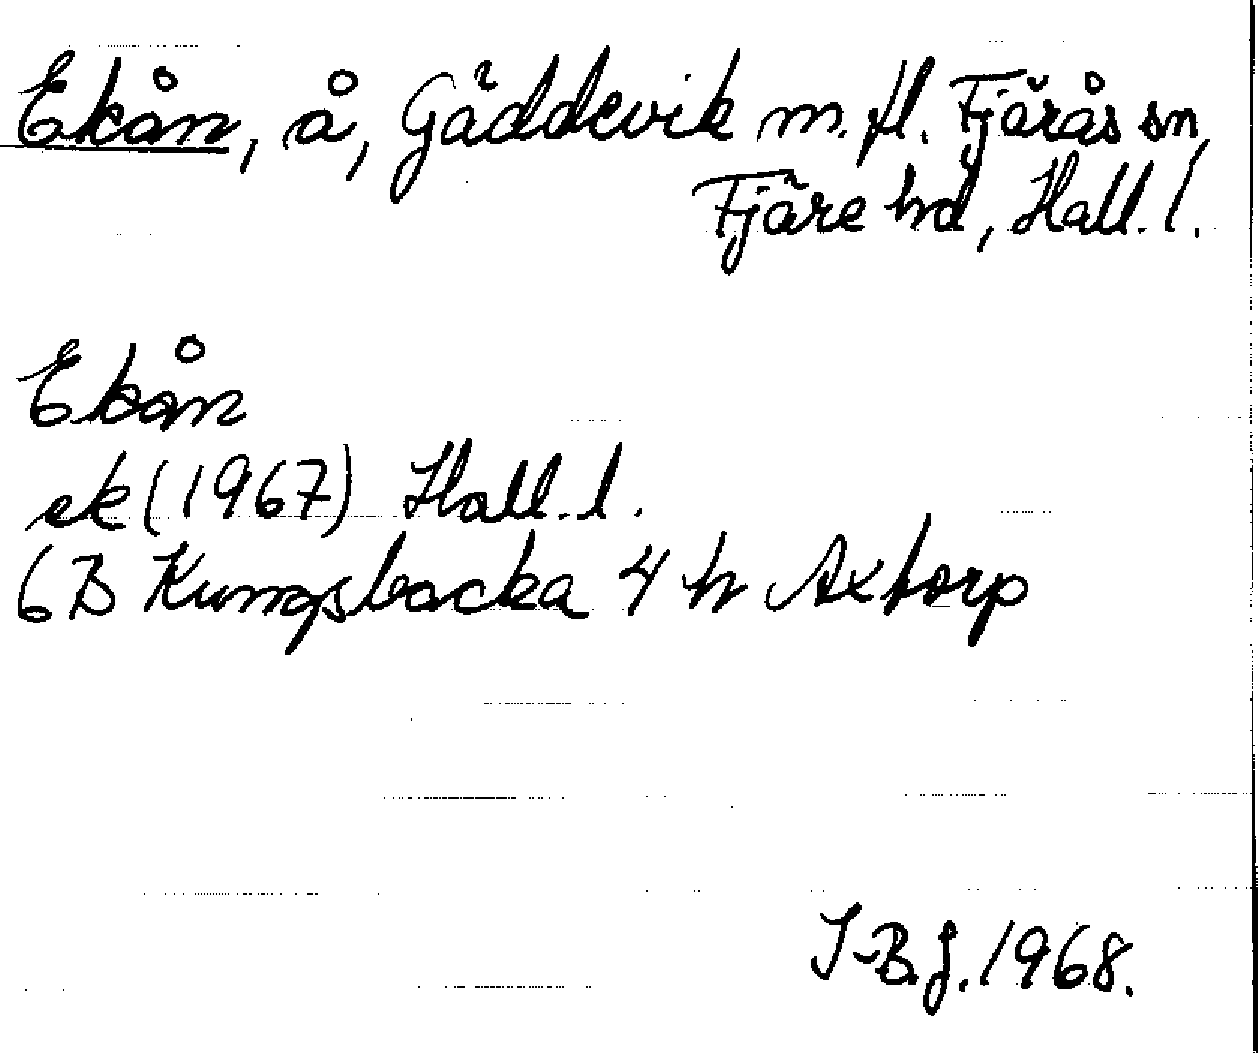 Ekån, å, Gäddevik m. fl. Fjärås sn,
Fjäre hd, Hall. l.
Ekån
ek (1967) Hall. l.
6B Kungsbacka 4 h Axtorp
I-B.J. 1968.